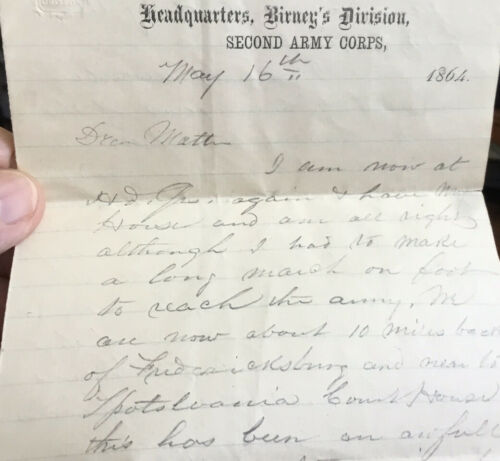 Headquarters, Birney's Division,
SECOND ARMY CORPS,
May 16th 1864.
Dear Matt
I am now at
Hd. Qrs. again & have my
House and am all right
although I had to make
a long march on foot
to reach the army. We
are now about 10 miles back
of Fredricksburg and near to
Spotslvania Court House
this has been an awfull